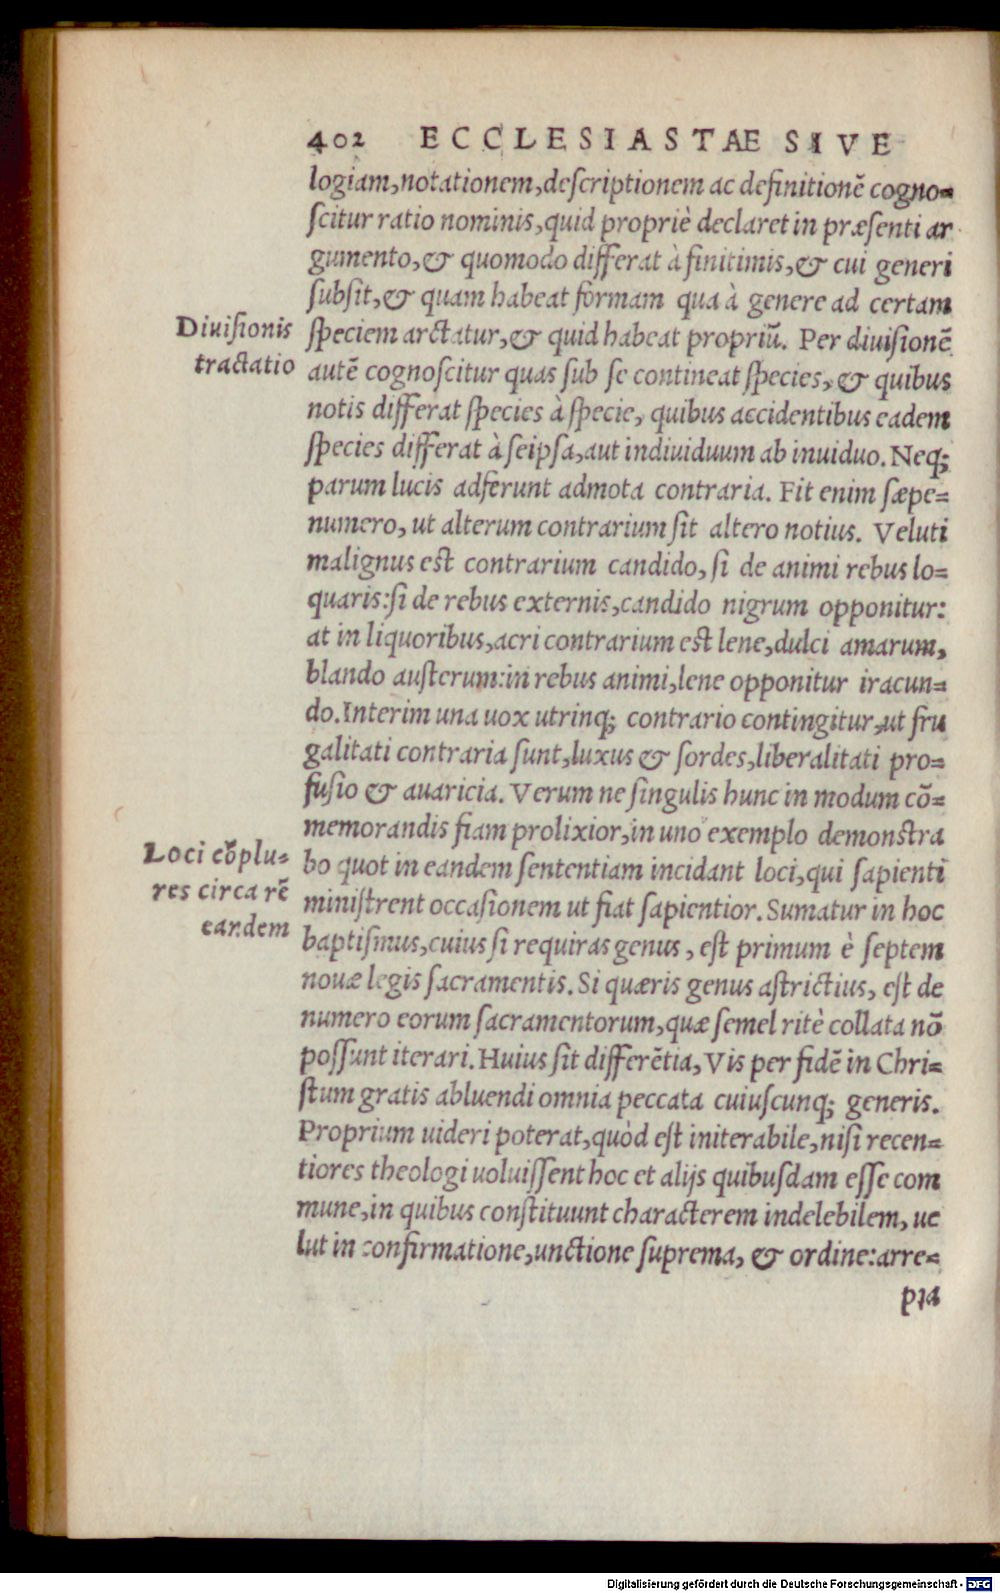 402 ECCLESIASTAE SIVE
logiam,notationem,descriptionem ac definitionē cogno=
scitur ratio nominis,quid propriè declaret in præsenti ar
gumento,& quomodo differat à finitimis,& cui generi
subsit,& quam habeat formam qua à genere ad certam
Diuisionis
tractatio
speciem arctatur,& quid habeat propriū. Per diuisionē
autē cognoscitur quas sub se contineat species,& quibus
notis differat species à specie, quibus accidentibus eadem
species differat à seipsa,aut indiuiduum ab inuiduo. Neq;
parum lucis adferunt admota contraria. Fit enim sæpe=
numero, ut alterum contrarium sit altero notius. Veluti
malignus est contrarium candido, si de animi rebus lo=
quaris:si de rebus externis,candido nigrum opponitur:
at in liquoribus,acri contrarium est lene,dulci amarum,
blando austerum:in rebus animi,lene opponitur iracun=
do.Interim una uox utrinq; contrario contingitur,ut fru
galitati contraria sunt,luxus & sordes,liberalitati pro=
fusio & auaricia. Verum ne singulis hunc in modum cō=
memorandis fiam prolixior,in uno exemplo demonstra
Loci cōplu=
res circa rē
eandem
bo quot in eandem sententiam incidant loci,qui sapienti
ministrent occasionem ut fiat sapientior. Sumatur in hoc
baptismus,cuius si requiras genus, est primum è septem
nouæ legis sacramentis. Si quæris genus astrictius, est de
numero eorum sacramentorum,quæ semel ritè collata nō
possunt iterari. Huius sit differētia, Vis per fidē in Chri=
stum gratis abluendi omnia peccata cuiuscunq; generis.
Proprium uideri poterat,quòd est initerabile,nisi recen=
tiores theologi uoluissent hoc et alijs quibusdam esse com
mune,in quibus constituunt characterem indelebilem, ue
lut in confirmatione,unctione suprema, & ordine:arre=
pta
Digitalisierung gefördert durch die Deutsche Forschungsgemeinschaft - DFG